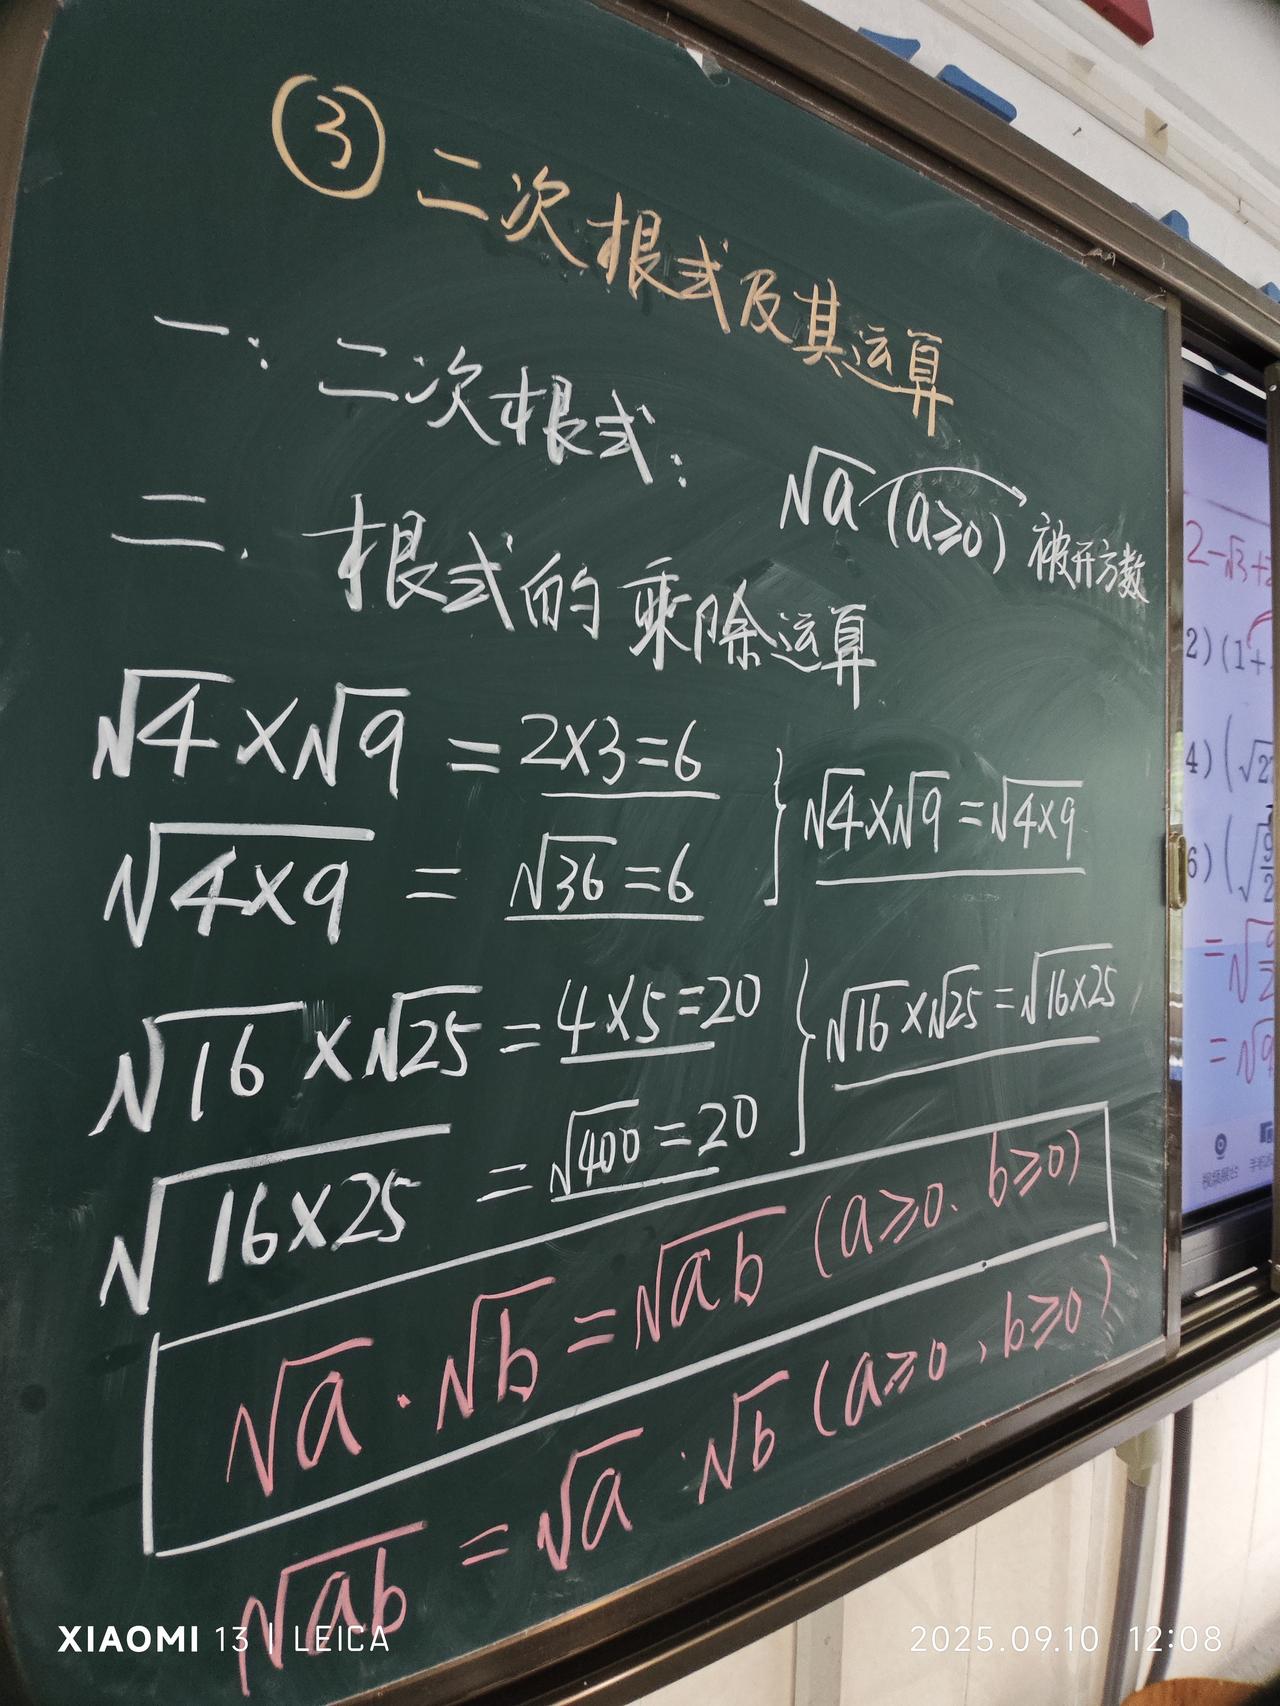 ③ 二次根式及其运算
一: 二次根式: √a (a≥0) 被开方数
二. 根式的乘除运算
√4 × √9 = 2×3=6
√(4×9) = √36 = 6
√4×√9 = √(4×9)
√16 × √25 = 4×5=20
√(16×25) = √400 = 20
√16×√25 = √(16×25)
√a · √b = √ab (a≥0. b≥0)
√ab = √a · √b (a≥0, b≥0)
2-√3+
2) (1+
4) (√2
6) (
视频展台
XIAOMI 13 | LEICA
2025.09.10 12:08